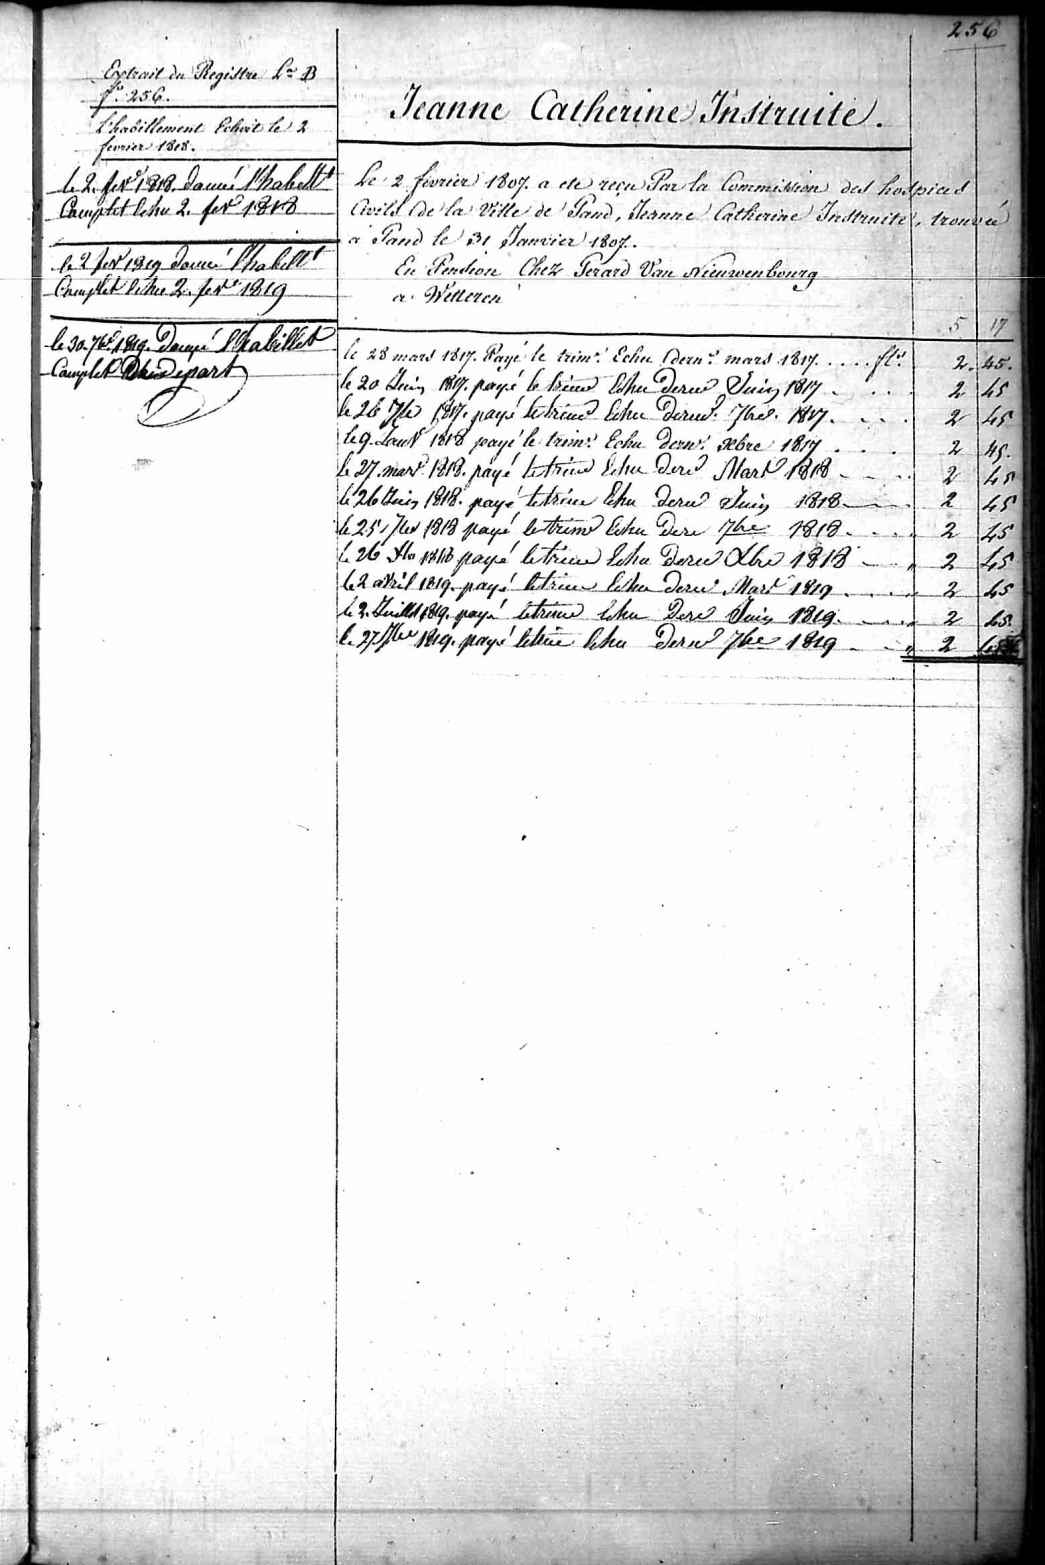 256
Extrait du Registre Lra B
fo. 256.
L'habillement Echoit le 2
fevrier 1818.
le 2. fevr 1818. donné l'habillt
Complet Echu 2. fevr 1818
le 2 fevr 1819 donné l'habillt
Complet Echu 2. fevr 1819
le 30. 7bre 1819. Donné l'habillet
Complet
Jeanne Catherine Instruite.
Le 2 fevrier 1807. a ete reçu Par la Commission des hospices
Civils de la Ville de Gand, Jeanne Catherine Instruite, trouvée
à Gand le 31 Janvier 1807.
En Pension Chez Gerard Van Nieuwenbourg
a Wetteren
5 17
le 28 mars 1817. Payé le trimre Echu dernr mars 1817. . . . . fls. 2. 45.
le 20 Juin 1817. payé le trime Echu Derne Juin 1817 . . . . 2 45
le 26 7bre 1817. payé le trime Echu dernr. 7bre. 1817. . . . . 2 45
le 9. Janvr 1818 payé le trimre Echu dernr. xbre 1817 . . . . 2 45.
le 27 mars 1818. payé le trime Echu dere Mars 1818 - - - . . 2 45
le 26 Juin 1818. payé le trime Echu derne Juin 1818 2 45
le 25 7bre 1818 payé le trime Echu Dere 7bre 1818 - . . . . 2 45
le 26 Xbre 1818 payé le trime Echu Derne Xbre 1818 2 45
le 2 avril 1819. payé le trime Echu derne Mars 1819 . . . . 2 45
le 2. Juillet 1819. payé le trime Echu Dere Juin 1819. . . . . 2 45.
le 27 7bre 1819. payé le trime Echu Derne 7bre 1819 - - 2 45